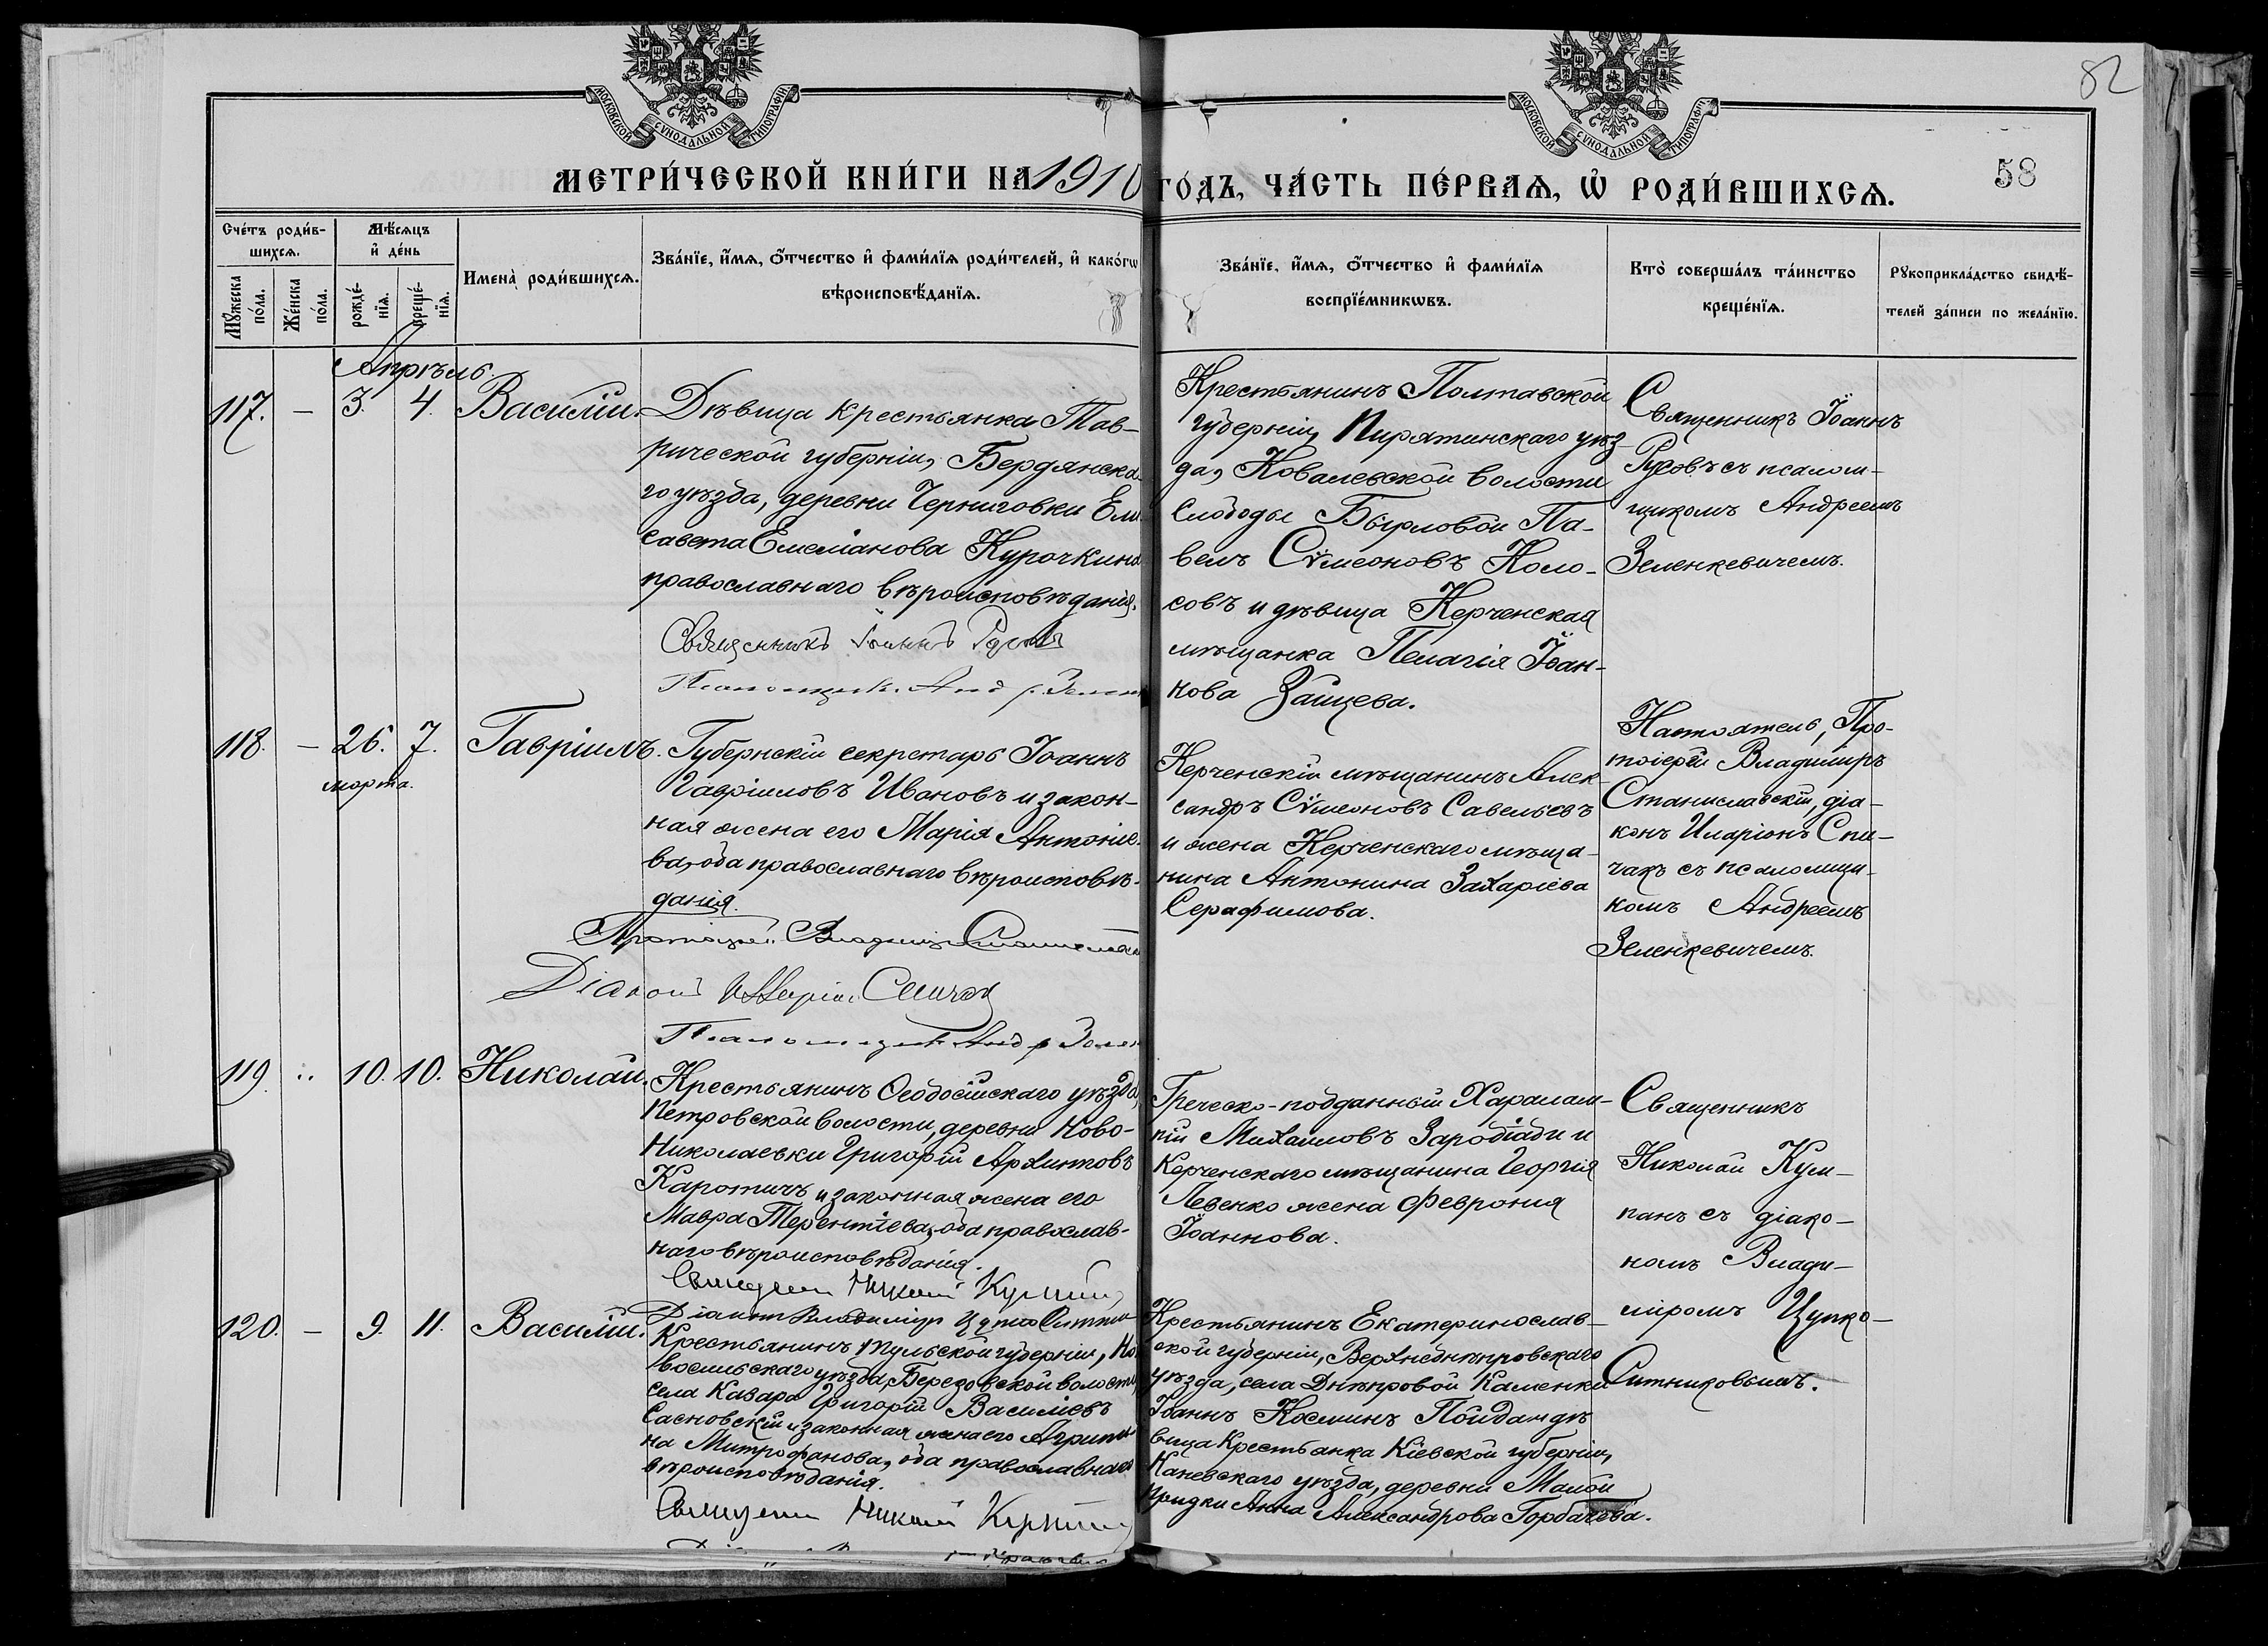 МОСКОВСКОЙ СѴНОДАЛЬНОЙ ТИПОГРАФІИ
МОСКОВСКОЙ СѴНОДАЛЬНОЙ ТИПОГРАФІИ
82
58
МЕТРИ́ЧЕСКОЙ КНИ́ГИ НА 1910 ГО́ДЪ, ЧА́СТЬ ПЕ́РВАѦ, Ѡ҆ РОДИ́ВШИХСѦ.
Сче́тъ роди́в-
шихсѧ.
Мꙋжеска по́ла.
Же́нска по́ла.
Мѣ́сѧцъ
и҆ де́нь
рожде́-
нїѧ.
креще́-
нїѧ.
Имена̀ роди́вшихсѧ.
Зва́нїе, и҆́мѧ, ѻ҆́тчество и҆ фами́лїѧ роди́телей, и҆ како́гѡ
вѣроисповѣ́данїѧ.
Зва́нїе, и҆́мѧ, ѻ҆́тчество и҆ фами́лїѧ
воспрїе́мникѡвъ.
Кто̀ соверша́лъ та́инство
креще́нїѧ.
Рꙋкоприкла́дство свидѣ́-
телей за́писи по жела́нїю.
Апрѣль
117. — 3. 4. Василій.
Дѣвица крестьянка Тав-
рической губерніи, Бердянска-
го уѣзда, деревни Черниговки Ели-
савета Емеліанова Курочкина
православнаго вѣроисповѣданія.
Священникъ Іоаннъ Русовъ
Псаломщикъ Андр. Зелен
Крестьянинъ Полтавской
губерніи, Пирятинскаго уѣз
да, Ковалевской волости
слободы Бырловой Па-
велъ Сѵмеоновъ Коло-
совъ и дѣвица Керченская
мѣщанка Пелагія Іоан-
нова Зайцева.
Священникъ Іоаннъ
Русовъ съ псалом-
щикомъ Андреемъ
Зеленкевичемъ.
118. — 26. 7. Гавріилъ.
марта.
Губернскій секретарь Іоаннъ
Гавріиловъ Ивановъ и закон-
ная жена его Марія Антоніе-
ва, оба православнаго вѣроисповѣ-
данія.
Протоіерей Владимір Станиславскій
Діаконъ Иларіонъ Спичак
Псаломщикъ Андр Зелен
Керченскій мѣщанинъ Алек
сандръ Сѵмеоновъ Савельевъ
и жена Керченскаго мѣща-
нина Антонина Захаріева
Серафимова.
Настоятель, Про-
тоіерей Владимиръ
Станиславскій, діа-
конъ Иларіонъ Спи-
чакъ съ псаломщи-
комъ Андреемъ
Зеленкевичемъ.
119. .. 10. 10. Николай.
Крестьянинъ Ѳеодосійскаго уѣзда,
Петровской волости, деревни Ново-
Николаевки Григорій Архиповъ
Каротичъ и законная жена его
Мавра Терентіева, оба православ-
наго вѣроисповѣданія.
Священникъ Николай Кумпанъ
Діаконъ Владимир Цупко Ситник
Греческо-подданный Харалам-
пій Михаиловъ Заробіади и
Керченскаго мѣщанина Георгія
Левенко жена Феврония
Іоаннова.
Священникъ
Николай Кум-
панъ съ діако-
номъ Влади-
міромъ Цупко-
Ситниковымъ.
120. — 9. 11. Василій.
Крестьянинъ Тульской губерніи, Но
восильскаго уѣзда, Березовской волости,
села Казара Григорій Василіевъ
Сасновскій и законная жена его Агрипи
на Митрофанова, оба православнаго
вѣроисповѣданія.
Священникъ Николай Кумпанъ
Крестьянинъ Екатеринослав-
ской губерніи, Верхнеднѣпровскаго
уѣзда, села Днѣпровой Каменки
Іоаннъ Космінъ Пойда и дѣ
вица крестьянка Кіевской губерніи,
Каневскаго уѣзда, деревни Малой
Прицки Анна Александрова Горбачева.